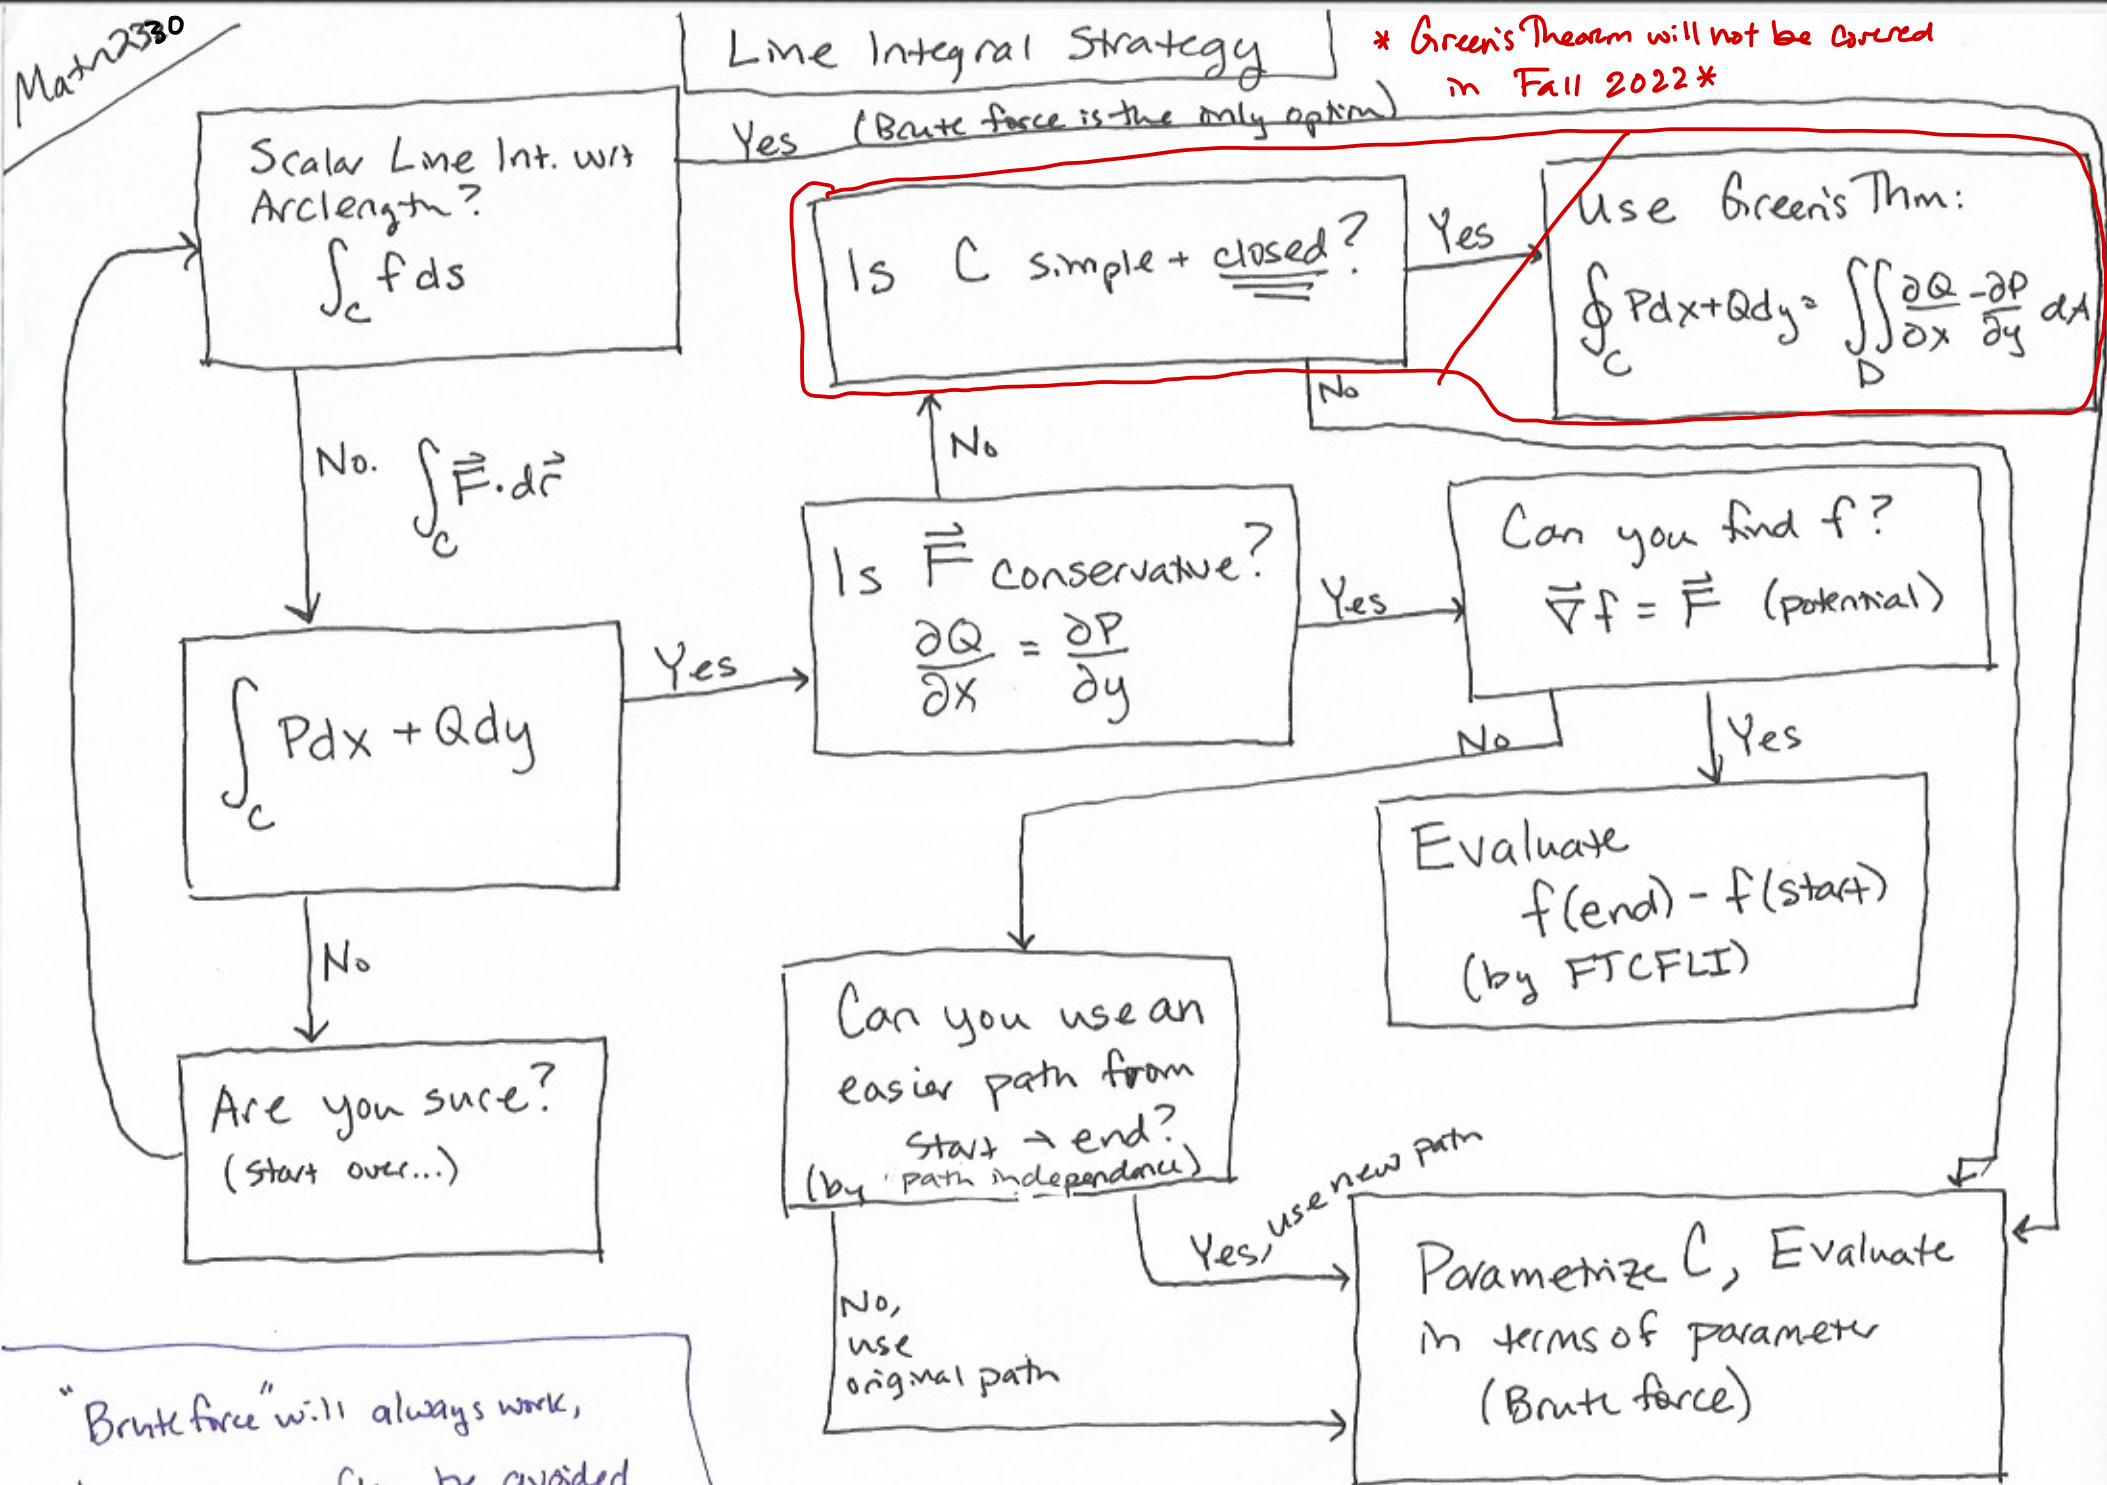 Math2330
Line Integral Strategy
* Green's Theorem will not be covered
in Fall 2022*
Scalar Line Int. wrt
Arclength?
∫_C f ds
Yes (Brute force is the only option)
Is C simple + closed?
Yes
Use Green's Thm:
∮_C Pdx+Qdy = ∬_D ∂Q/∂x - ∂P/∂y dA
No
No. ∫_C F⃗·dr⃗
No
Is F⃗ conservative?
∂Q/∂x = ∂P/∂y
Yes
Can you find f?
∇⃗f = F⃗ (potential)
∫_C Pdx + Qdy
Yes
No
Yes
Evaluate
f(end) - f(start)
(by FTCFLI)
No
Are you sure?
(start over...)
Can you use an
easier path from
start → end?
(by path independence)
Yes, use new path
No,
use
original path
Parametrize C, Evaluate
in terms of parameter
(Brute force)
"Brute force" will always work,
be avoided